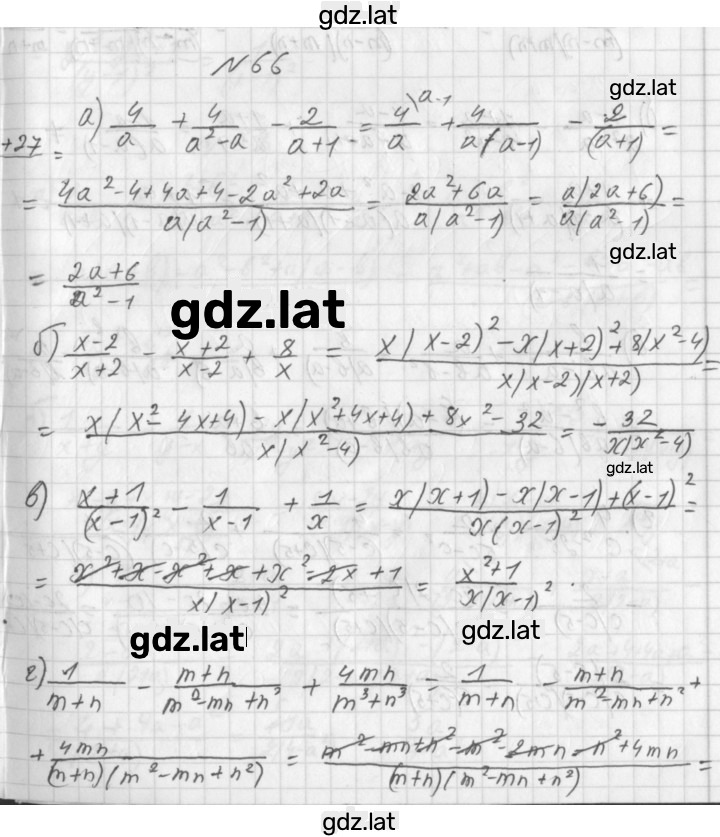 gdz.lat
N 66
gdz.lat
а) 4/a + 4/(a²-a) - 2/(a+1) = 4\a-1/a + 4/(a(a-1)) - 2/(a+1) =
+27 =
= (4a²-4+4a+4-2a²+2a)/(a(a²-1)) = (2a²+6a)/(a(a²-1)) = a(2a+6)/(a(a²-1)) =
gdz.lat
= (2a+6)/(a²-1)
gdz.lat
б) (x-2)/(x+2) - (x+2)/(x-2) + 8/x = (x(x-2)²-x(x+2)²+8(x²-4))/(x(x-2)(x+2)) =
= (x(x²-4x+4)-x(x²+4x+4)+8x²-32)/(x(x²-4)) = -32/(x(x²-4))
gdz.lat
в) (x+1)/(x-1)² - 1/(x-1) + 1/x = (x(x+1)-x(x-1)+(x-1)²)/(x(x-1)²) =
= (x²+x-x²+x+x²-2x+1)/(x(x-1)²) = (x²+1)/(x(x-1)²)
gdz.lat
gdz.lat
г) 1/(m+n) - (m+n)/(m²-mn+n²) + 4mn/(m³+n³) = 1/(m+n) - (m+n)/(m²-mn+n²) +
+ 4mn/((m+n)(m²-mn+n²)) = (m²-mn+n²-m²-2mn-n²+4mn)/((m+n)(m²-mn+n²)) =
gdz.lat